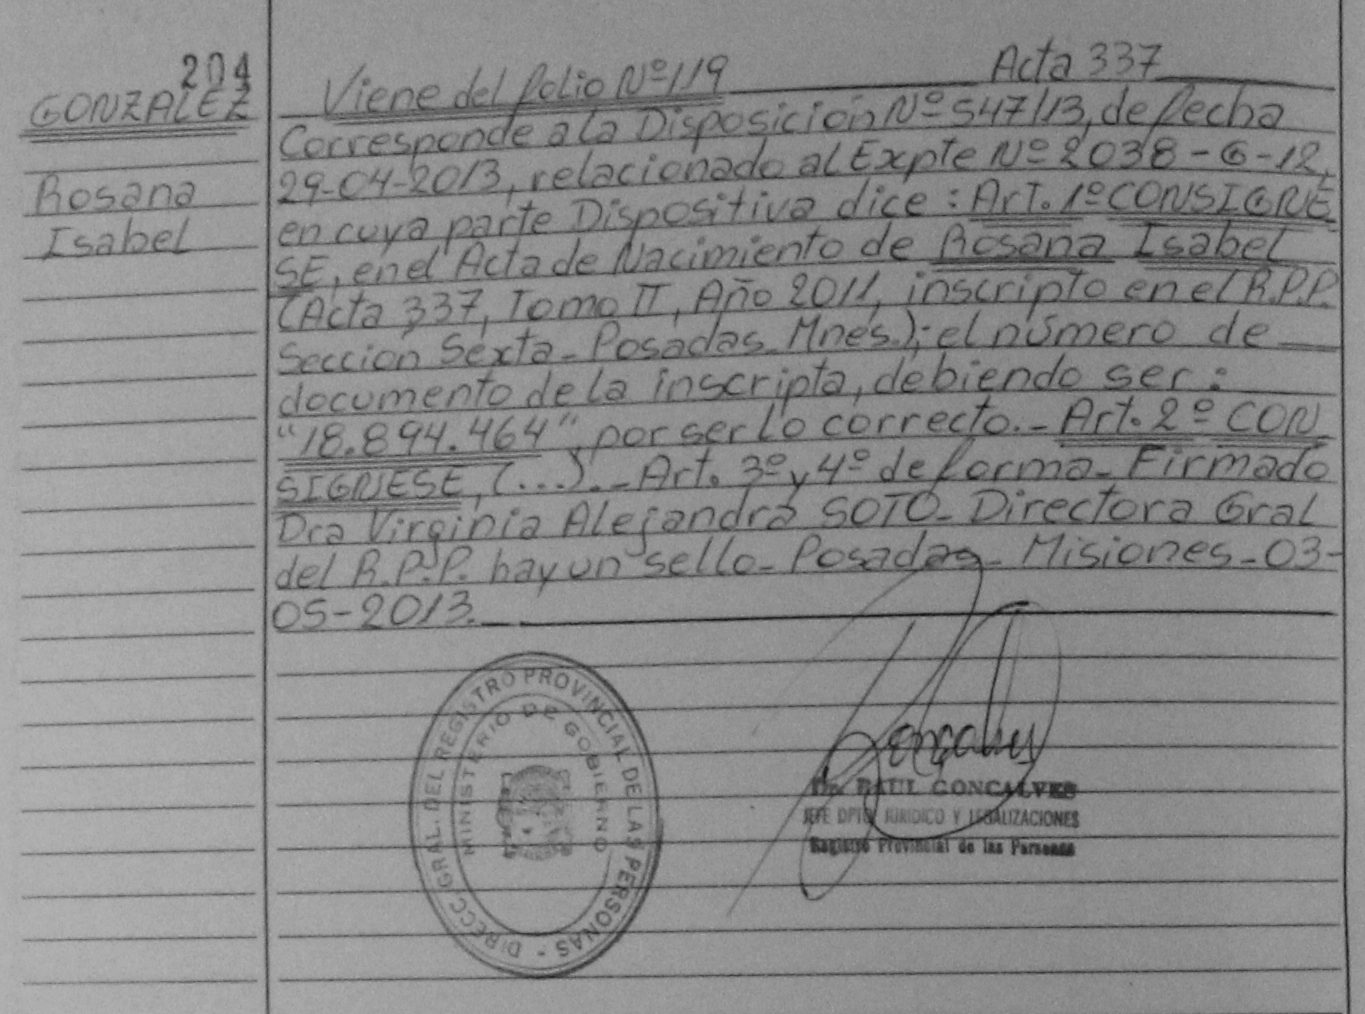 204
GONZALEZ
Rosana
Isabel
Viene del folio Nº 119 Acta 337
Corresponde a la Disposición Nº 547/13, de fecha
29-04-2013, relacionado al Expte Nº 2038-G-12,
en cuya parte Dispositiva dice: Art. 1º CONSIGNE
SE, en el Acta de Nacimiento de Rosana Isabel
(Acta 337, Tomo II, Año 2011, inscripto en el R.P.P.
Sección Sexta-Posadas-Mnes.); el número de
documento de la inscripta, debiendo ser:
"18.894.464", por ser lo correcto.- Art. 2º CON
SIGNESE, (...).- Art. 3º y 4º de forma- Firmado
Dra Virginia Alejandra SOTO- Directora Gral
del R.P.P. hay un sello- Posadas- Misiones-03-
05-2013.-
DIRECC. GRAL. DEL REGISTRO PROVINCIAL DE LAS PERSONAS -
MINISTERIO DE GOBIERNO
Goncalves
Dr. RAUL GONCALVES
JEFE DPTO JURIDICO Y LEGALIZACIONES
Registro Provincial de las Personas